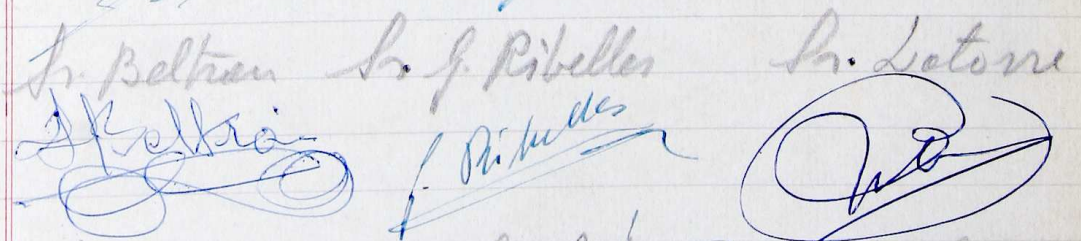 Sr. Beltran Sr. G. Ribelles Sr. Latorre
J Beltrán G. Ribelles